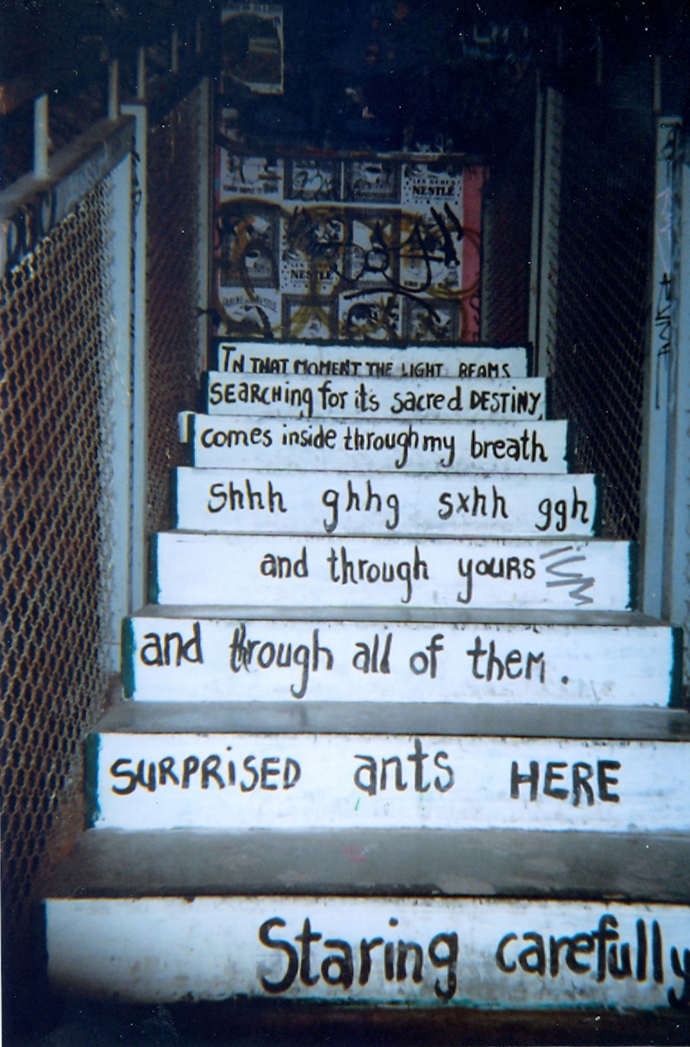 NESTLÉ
NESTLÉ
IN THAT MOMENT THE LIGHT BEAMS
SEARCHING for its sacred DESTINY,
comes inside through my breath
shhh ghhg sxhh ggh
and through yOURS
and through all of them.
SURPRiSED ants HERE
Staring carefully